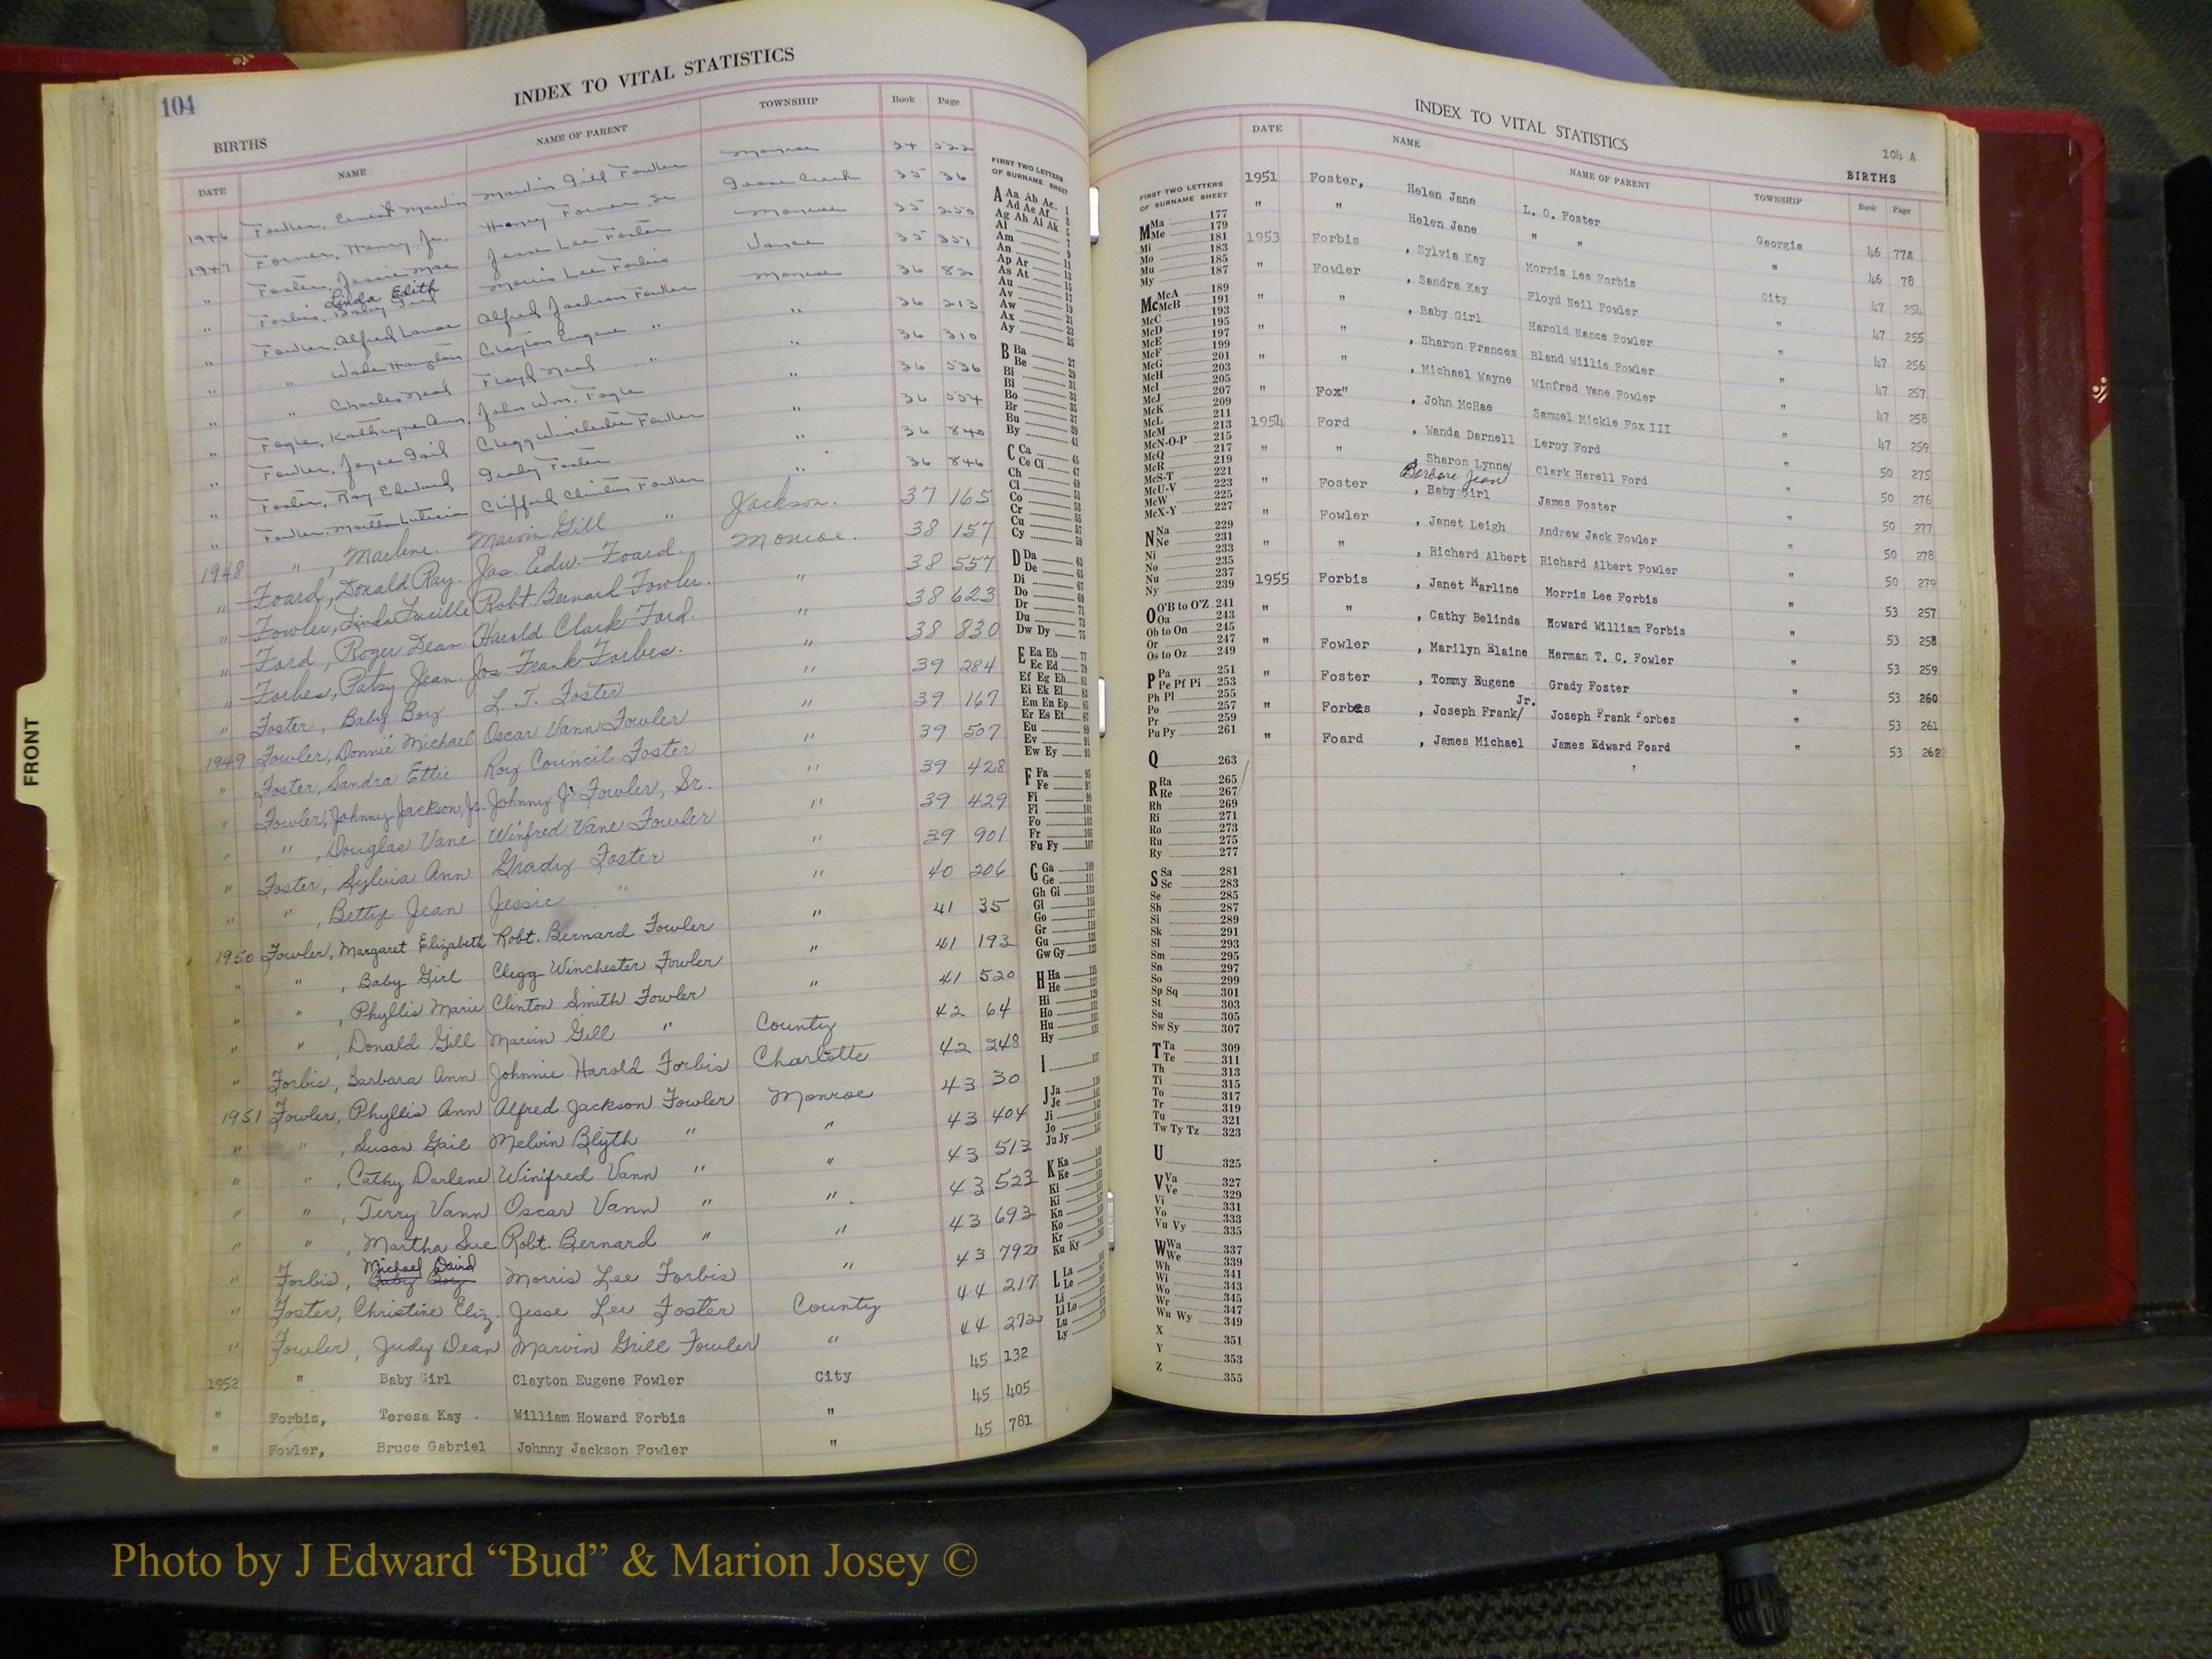 104
INDEX TO VITAL STATISTICS
BIRTHS
DATE NAME NAME OF PARENT TOWNSHIP Book Page
1946 Fowler, Ernest Marvin Marvin Gill Fowler Monroe 34 522
1947 Forner, Henry, Jr. Henry Forner Sr Goose Creek 35 36
" Foster, Jessie Mae Jesse Lee Foster Monroe 35 250
Linda Edith
" Forbis, Baby Girl Morris Lee Forbis Vance 35 351
" Fowler, Alfred Lamar Alfred Jackson Fowler Monroe 36 82
" " Wade Houston Clayton Eugene " " 36 213
" " Charles Neal Floyd Neal " " 36 310
" Fogle, Kathryne Ann John Wm. Fogle " 36 536
" Fowler, Joyce Gail Clegg Winchester Fowler " 36 554
" Foster, Ray Edward Grady Foster " 36 840
" Fowler, Martha Clifford Clinton Fowler " 36 846
1948 " , Marlene. Marvin Gill " Jackson. 37 165
" Foard, Donald Ray. Jas. Edw. Foard. Monroe. 38 157
" Fowler, Linda Lucille Robt Bernard Fowler. " 38 557
" Ford, Roger Dean. Harold Clark Ford. " 38 623
" Forbes, Patsy Jean. Jos. Frank Forbes. " 38 830
" Foster, Baby Boy L. T. Foster " 39 284
1949 Fowler, Donnie Michael Oscar Vann Fowler " 39 167
" Foster, Sandra Ettie Roy Council Foster " 39 507
" Fowler, Johnny Jackson, Jr. Johnny J. Fowler, Sr. " 39 428
" " , Douglas Vane Winfred Vane Fowler " 39 429
" Foster, Sylvia Ann Grady Foster " 39 901
" " , Bettye Jean Jessie " " 40 206
1950 Fowler, Margaret Elizabeth Robt. Bernard Fowler " 41 35
" " , Baby Girl Clegg Winchester Fowler " 41 193
" " , Phyllis Marie Clinton Smith Fowler " 41 520
" " , Donald Gill Marvin Gill " County 42 64
" Forbis, Barbara Ann Johnnie Harold Forbis Charlotte 42 248
1951 Fowler, Phyllis Ann Alfred Jackson Fowler Monroe 43 30
" " , Susan Gail Melvin Blyth " " 43 404
" " , Cathy Darlene Winifred Vann " " 43 513
" " , Terry Vann Oscar Vann " " 43 523
" " , Martha Sue Robt. Bernard " " 43 693
Michael David
" Forbis, Baby Boy Morris Lee Forbis " 43 792
" Foster, Christine Eliz. Jesse Lee Foster County 44 217
" Fowler, Judy Dean Marvin Grill Fowler " 44 272
1952 " Baby Girl Clayton Eugene Fowler City 45 132
" Forbis, Teresa Kay . William Howard Forbis " 45 405
" Fowler, Bruce Gabriel Johnny Jackson Fowler " 45 781
FRONT
FIRST TWO LETTERS
OF SURNAME SHEET
A Aa Ab Ac 1
Ad Ae Af 3
Ag Ah Ai Ak 5
Al 7
Am 9
An
Ap Ar
As At
Au
Av
Aw
Ax
Ay
B Ba 27
Be 29
Bi 31
Bl 33
Bo 35
Br 37
Bu 39
By 41
C Ca 45
Ce Ci 47
Ch 49
Cl 51
Co 53
Cr
Cu
Cy
D Da 63
De 65
Di 67
Do 69
Dr 71
Du 73
Dw Dy 75
E Ea Eb 77
Ec Ed
Ef Eg Eh
Ei Ek El
Em En Ep
Er Es Et
Eu
Ev
Ew Ey
F Fa 95
Fe 97
Fi
Fl
Fo
Fr
Fu Fy
G Ga
Ge
Gh Gi
Gl
Go
Gr
Gu
Gw Gy
H Ha
He
Hi
Ho
Hu
Hy
I
J Ja
Je
Ji
Jo
Ju Jy
K Ka
Ke
Ki
Kn
Ko
Kr
Ku Ky
L La
Le
Li
Ll Lo
Lu
Ly
INDEX TO VITAL STATISTICS
104 A
BIRTHS
DATE NAME NAME OF PARENT TOWNSHIP Book Page
1951 Foster, Helen Jane L. O. Foster Georgia 46 77A
" " Helen Jane " " " 46 78
1953 Forbis , Sylvia Kay Morris Lee Forbis City 47 254
" Fowler , Sandra Kay Floyd Neil Fowler " 47 255
" " , Baby Girl Harold Nance Fowler " 47 256
" " , Sharon Frances Bland Willie Fowler " 47 257
" " , Michael Wayne Winfred Vane Fowler " 47 258
" Fox" , John McRae Samuel Mickle Fox III " 47 259
1954 Ford , Wanda Darnell Leroy Ford " 50 275
" " , Sharon Lynne Clark Harell Ford " 50 276
Barbara Jean
" Foster , Baby Girl James Foster " 50 277
" Fowler , Janet Leigh Andrew Jack Fowler " 50 278
" " , Richard Albert Richard Albert Fowler " 50 279
1955 Forbis , Janet Marline Morris Lee Forbis " 53 257
" " , Cathy Belinda Howard William Forbis " 53 258
" Fowler , Marilyn Elaine Herman T. C. Fowler " 53 259
" Foster , Tommy Eugene Grady Foster " 53 260
" Forbes , Joseph Frank/ Jr. Joseph Frank Forbes " 53 261
" Foard , James Michael James Edward Foard " 53 262
FIRST TWO LETTERS
OF SURNAME SHEET
M Ma 177
Me 179
Mi 181
Mo 183
Mu 185
My 187
Mc McA 189
McB 191
McC 193
McD 195
McE 197
McF 199
McG 201
McH 203
McI 205
McJ 207
McK 209
McL 211
McM 213
McN-O-P 215
McQ 217
McR 219
McS-T 221
McU-V 223
McW 225
McX-Y 227
N Na 229
Ne 231
Ni 233
No 235
Nu 237
Ny 239
O O'B to O'Z 241
Oa 243
Ob to On 245
Or 247
Os to Oz 249
P Pa 251
Pe Pf Pi 253
Ph Pl 255
Po 257
Pr 259
Pu Py 261
Q 263
R Ra 265
Re 267
Rh 269
Ri 271
Ro 273
Ru 275
Ry 277
S Sa 281
Sc 283
Se 285
Sh 287
Si 289
Sk 291
Sl 293
Sm 295
Sn 297
So 299
Sp Sq 301
St 303
Su 305
Sw Sy 307
T Ta 309
Te 311
Th 313
Ti 315
To 317
Tr 319
Tu 321
Tw Ty Tz 323
U 325
V Va 327
Ve 329
Vi 331
Vo 333
Vu Vy 335
W Wa 337
We 339
Wh 341
Wi 343
Wo 345
Wr 347
Wu Wy 349
X 351
Y 353
Z 355
Photo by J Edward “Bud” & Marion Josey ©